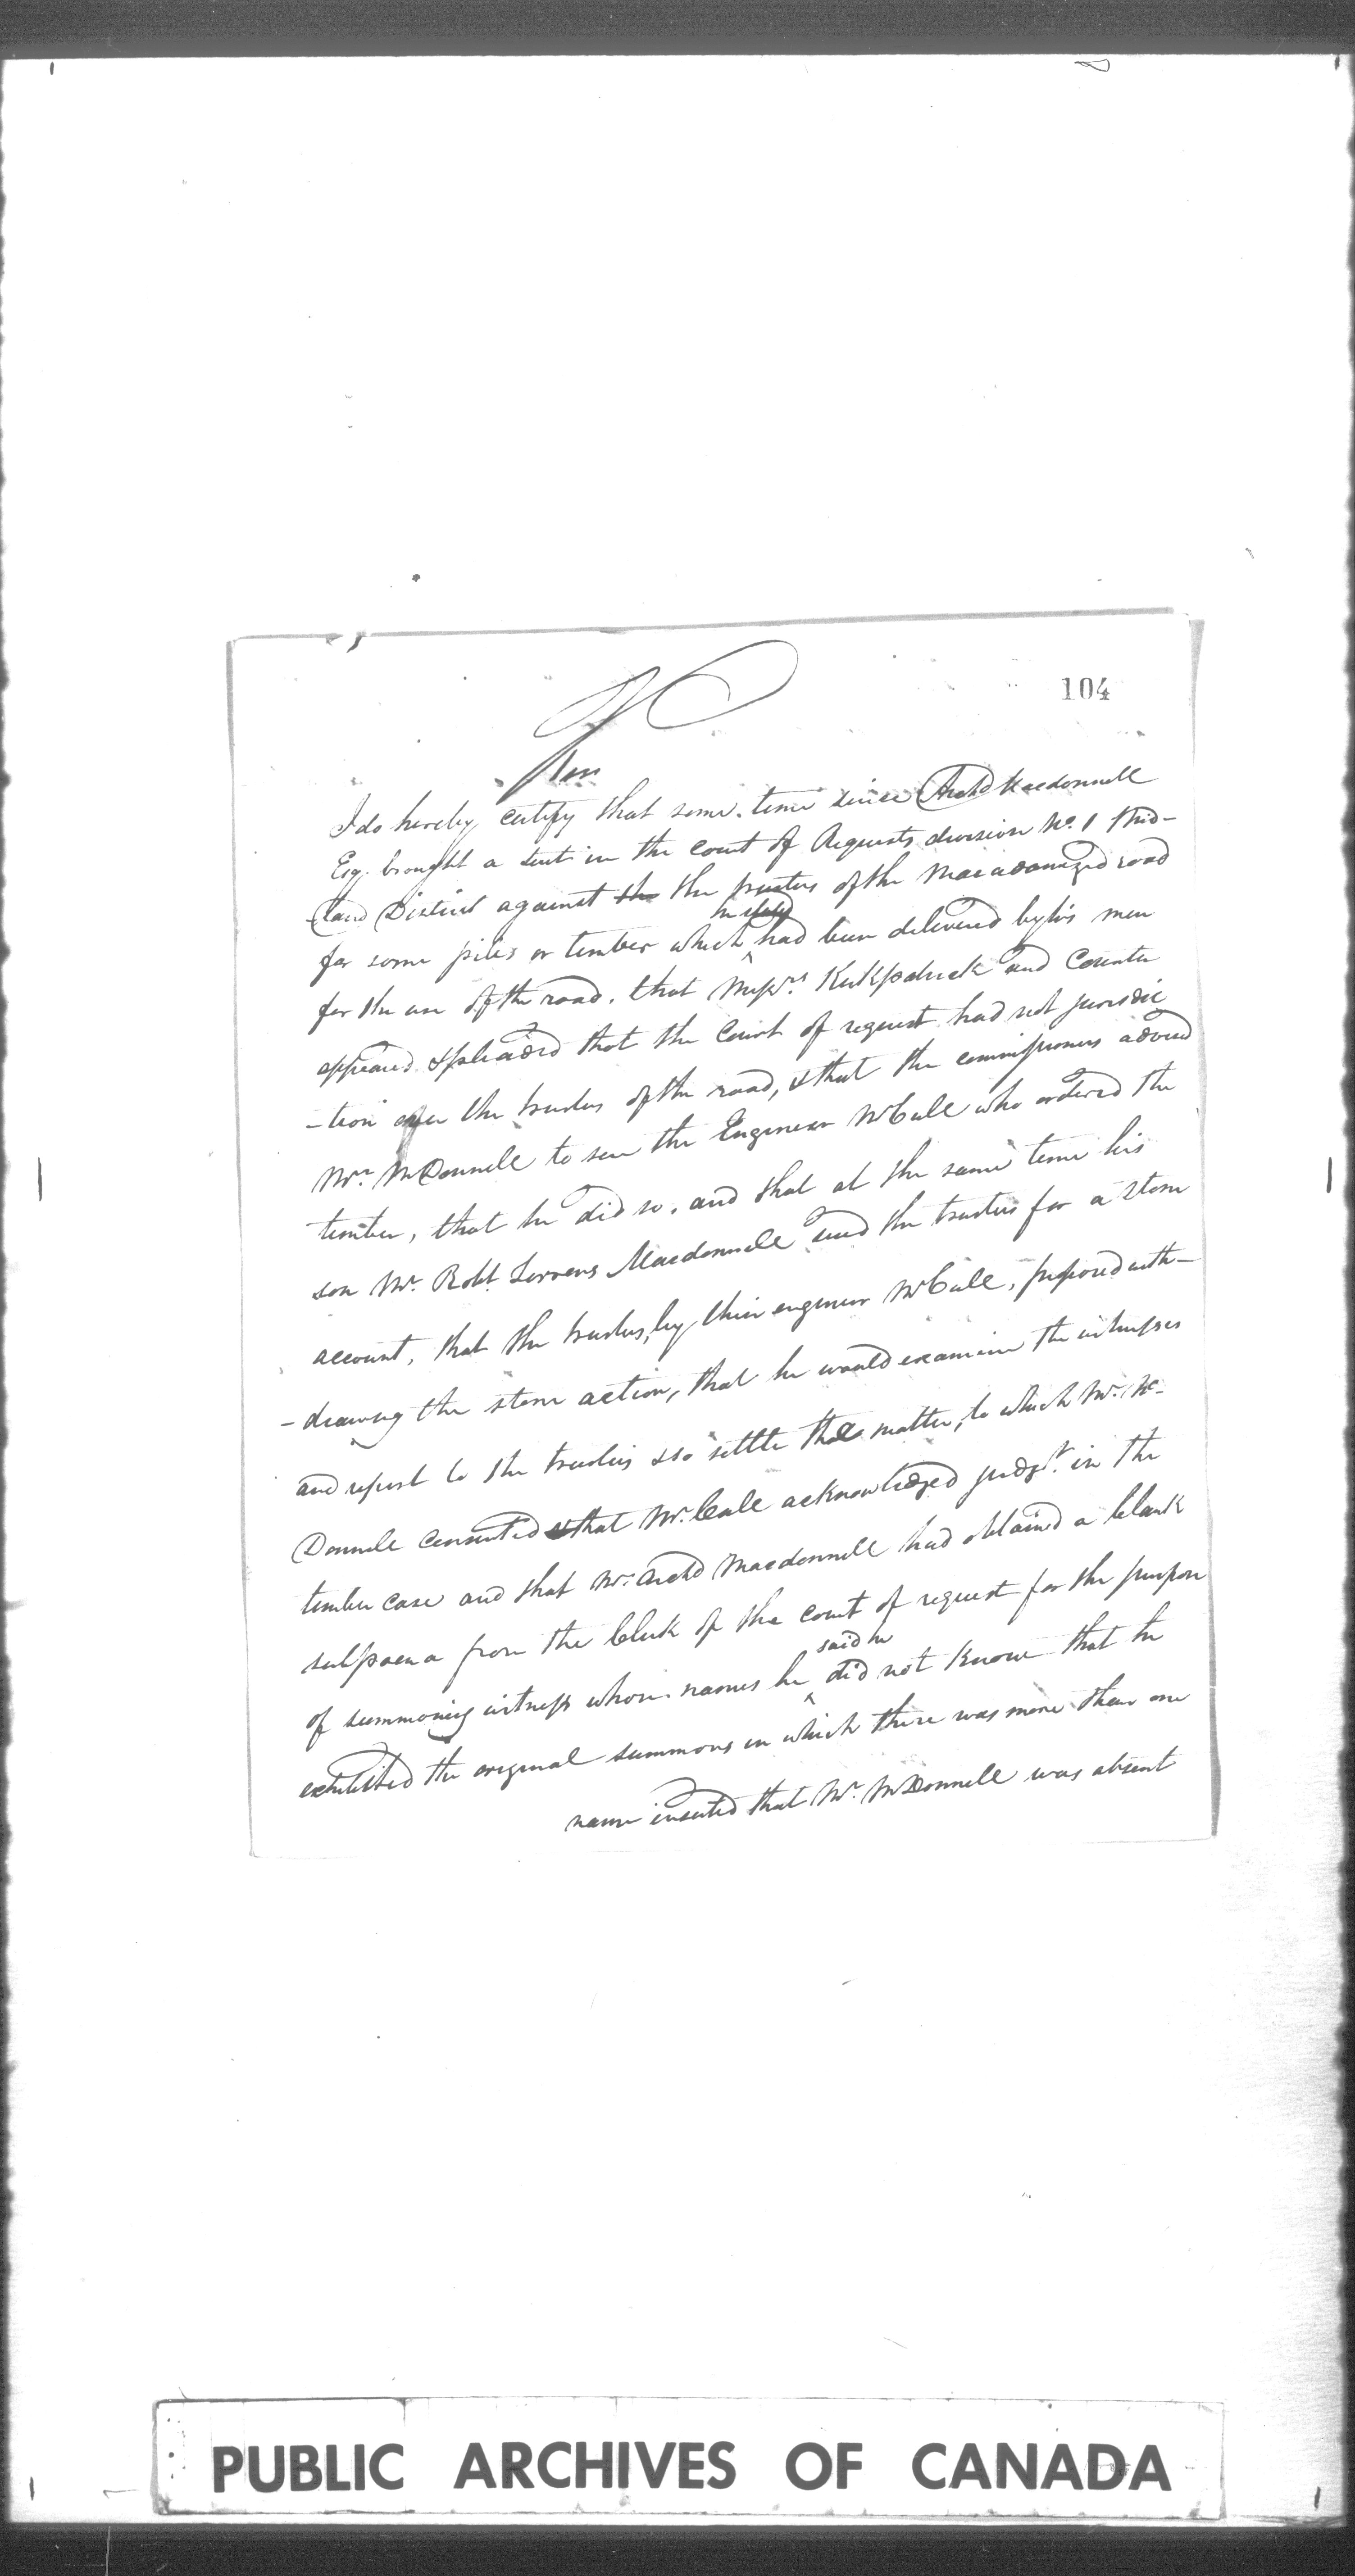 104
I do hereby certify that some time since Archd Macdonnell
Esq. brought a suit in the court of Requests division No. 1 Mid-
-land District against the the trustees of the Macadamized road
he stated
for some piles or timber which had been delivered by his men
for the use of the road. that Messrs. Kirkpatrick and Counter
appeared & pleaded that the Court of request had not jurisdic
-tion over the trustees of the road, & that the commissioners advised
Mr. McDonnell to see the Engineer McCall who ordered the
timber, that he did so. and that at the same time his
son Mr. Robt. Macdonnell sued the trustees for a stone
account, that the trustees, by their engineer McCall, proposed with-
-drawing the stone action, that he would examine the witnesses
and report to the trustees & so settle the matter, to which Mr. Mc-
Donnell consented & that Mr. Call acknowledged judgt. in the
timber case and that Mr. Archd Macdonnell had obtained a blank
subpoena from the Clerk of the court of request for the purpose
said he
of summoning witness whose names he did not know that he
exhibited the original summons in which there was more than one
name inserted that Mr. McDonnell was absent
PUBLIC ARCHIVES OF CANADA